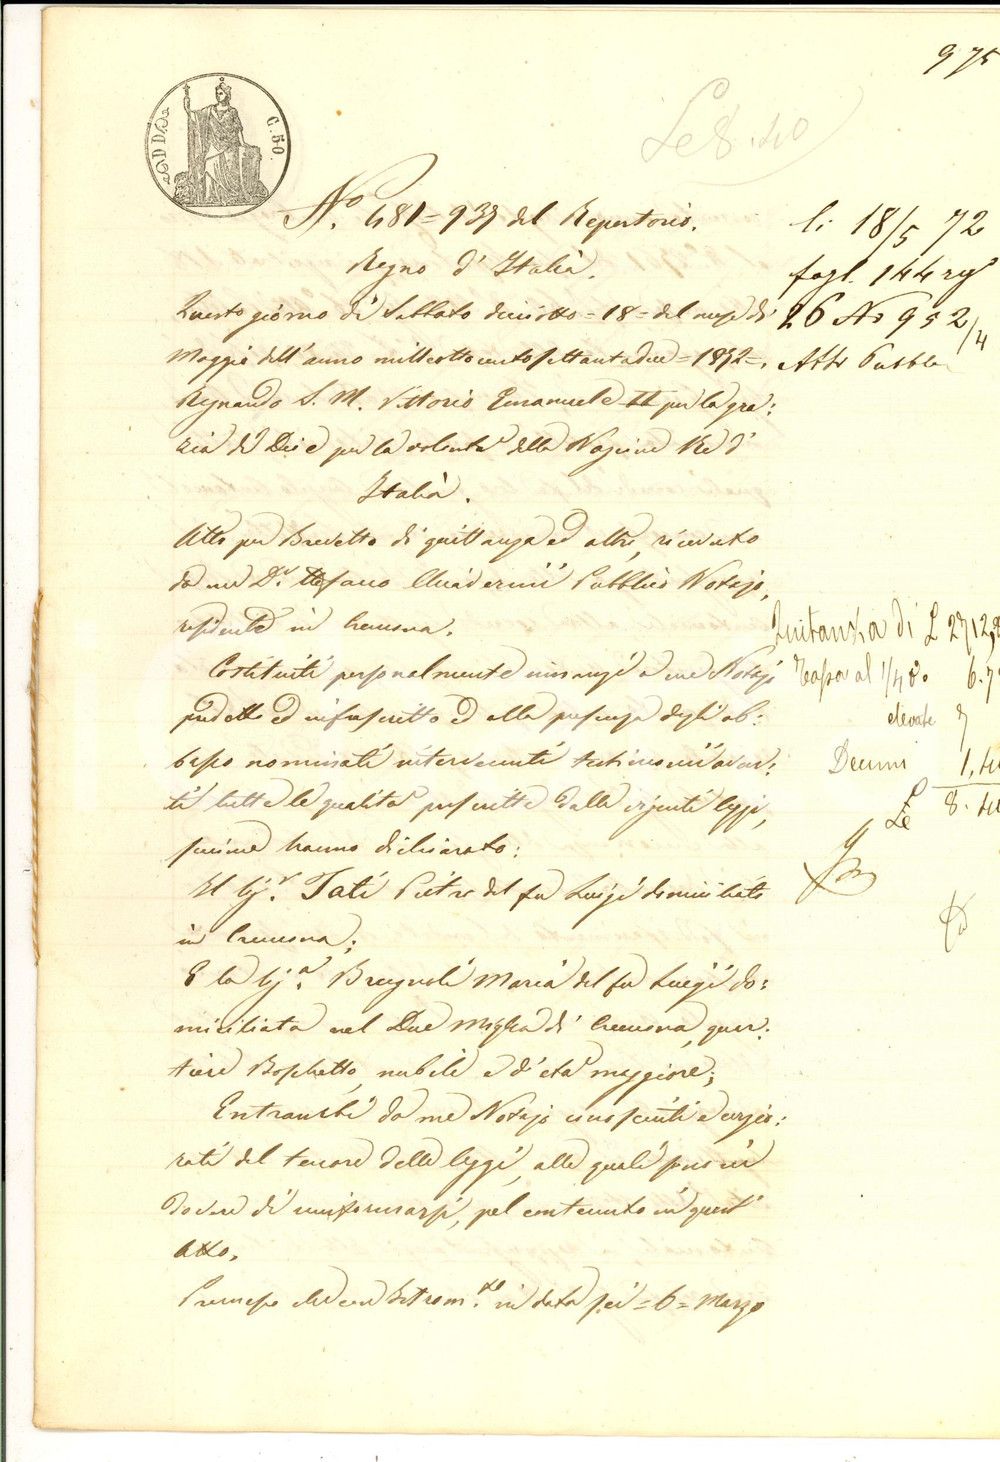 975
C. 50
L 8.40
N.o 481=937 del Repertorio.
Regno d'Italia.
Questo giorno di Sabbato dieciotto =18= del mese di
Maggio dell'anno mille ottocento settantadue =1872=.
Regnando S. M. Vittorio Emanuele II per la gra:
zia di Dio e per la volontà della Nazione Re d'
Italia.
Atto per Brevetto di quittanza ed altro, ricevuto
da me D.r Stefano Quaderni Pubblico Notajo,
residente in Cremona.
Costituiti personalmente innanzi a me Notajo
predetto ed infrascritto ed alla presenza degli ab:
basso nominati intervenuti testimonii aven:
ti tutte le qualità prescritte dalle vigenti leggi,
siccome hanno dichiarato:
Il Sig.r Tati Pietro del fu Luigi domiciliato
in Cremona;
E la Sig.a Bregnoli Maria del fu Luigi do:
miciliata nel Due Miglia di Cremona, quar:
tiere Boschetto, nubile e d'età maggiore;
Entrambi da me Notajo conosciuti e
del tenore delle leggi, alle quali
dovere di uniformarsi, pel contenuto in quest'
atto.
Premesso che con Istrom.to in data sei =6= Marzo
li 18/5 72
fogl. 144 rg°
26 No 952/4
Atti Pubbl
Quitanza di L 2712,
Tassa al 1/4 % 6.7
elevate 7
Decimi 1,40
L 8.40